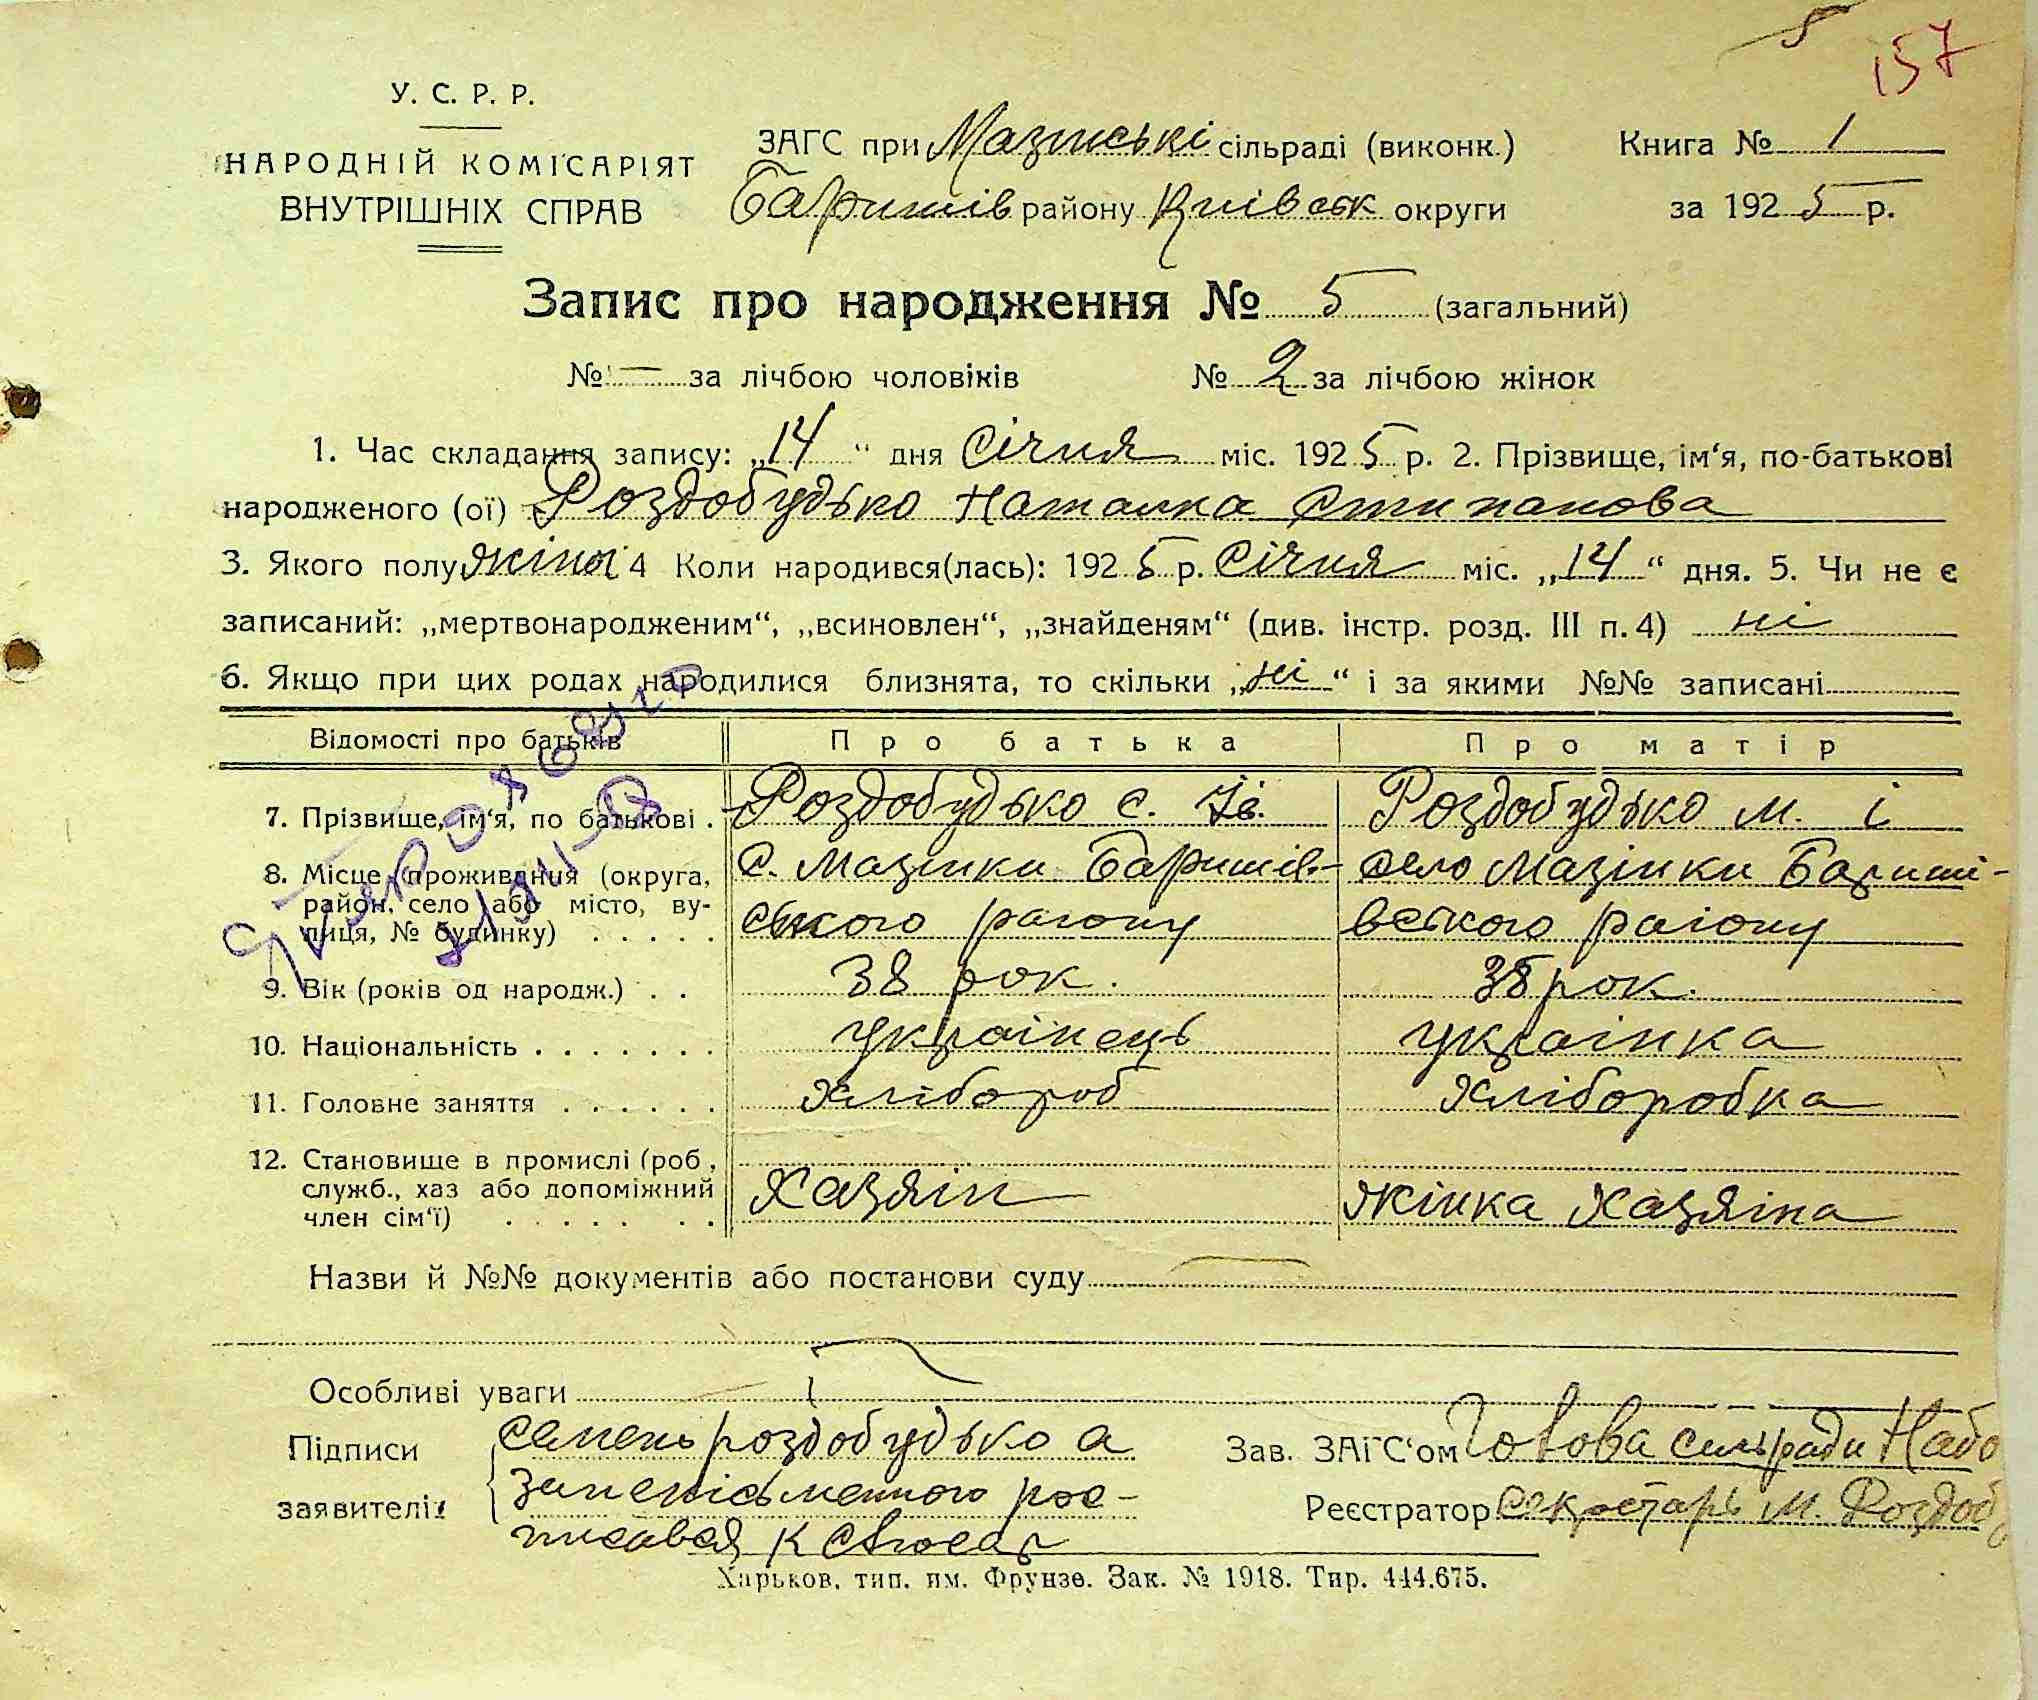 5
157
У. С. Р. Р.
НАРОДНІЙ КОМІСАРІЯТ
ВНУТРІШНІХ СПРАВ
ЗАГС при Мазинські сільраді (виконк.)
Баришів району Київськ округи
Книга № 1
за 1925 р.
Запис про народження № 5 (загальний)
№ — за лічбою чоловіків № 2 за лічбою жінок
1. Час складання запису: „14“ дня Січня міс. 1925 р. 2. Прізвище, ім‘я, по-батькові
народженого (ої) Роздобудько Наталка Стипанова
3. Якого полу жіноч 4 Коли народився(лась): 1925 р. Січня міс. „14“ дня. 5. Чи не є
записаний: „мертвонародженим“, „всиновлен“, „знайденям“ (див. інстр. розд. III п. 4) ні
6. Якщо при цих родах народилися близнята, то скільки „ні“ і за якими №№ записані
Відомості про батьків Про батька Про матір
7. Прізвище, ім‘я, по батькові . Роздобудько С. Ів. Роздобудько М. І
8. Місце проживання (округа, район, село або місто, вулиця, № будинку) . . . . . С. Мазінки Баришів- село Мазінки Бариші-
ського району вського району
9. Вік (років од народж.) . . 38 рок. 38 рок.
10. Національність . . . . . . . українець українка
11. Головне заняття . . . . . . хлібороб хліборобка
12. Становище в промислі (роб, служб., хаз або допоміжний член сім‘ї) . . . . . . . Хазяін жінка хазяіна
Назви й №№ документів або постанови суду
Особливі уваги
Підписи
заявителів
семень роздобудько а
занепісьменного рос-
писався К
Зав. ЗАГС‘ом Голова сільради Набо
Реєстратор Секретарь М. Роздоб
Харьков, тип. им. Фрунзе. Зак. № 1918. Тир. 444.675.